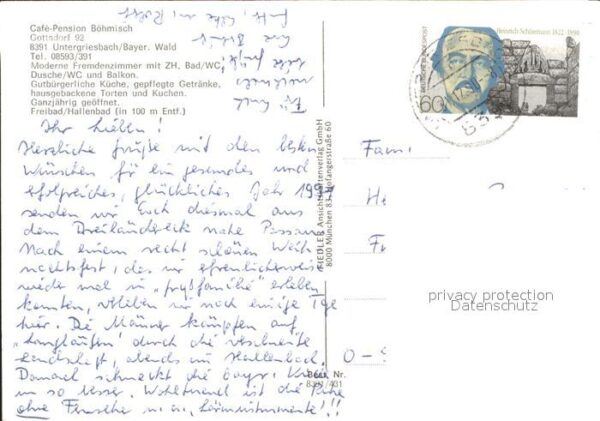 Café-Pension Böhmisch
Gottsdorf 92
8391 Untergriesbach/Bayer. Wald
Tel. 08593/391
Moderne Fremdenzimmer mit ZH, Bad/WC,
Dusche/WC und Balkon.
Gutbürgerliche Küche, gepflegte Getränke,
hausgebackene Torten und Kuchen.
Ganzjährig geöffnet.
Freibad/Hallenbad (in 100 m Entf.)
Ihr Lieben!
Herzliche Grüße mit den besten
Wünschen für ein gesundes und
erfolgreiches, glückliches Jahr 1991
senden wir Euch diesmal aus
dem Dreiländereck nahe Passau.
Nach einem recht schönen Weih-
nachtsfest, das wir erfreulicherweise
wieder mal in "Großfamilie" erleben
konnten, bleiben wir noch einige Tage
hier. Die Männer kämpfen auf
"Langläufen" durch die verschneite
Landschaft, abends im Hallenbad.
Danach schmeckt die bayr. Küche
um so besser. Wohltuend ist die Ruhe
ohne Fernseher u. a. "Lärminstrumente"!!
FIEDLER Ansichtskartenverlag GmbH
8000 München 83
Best. Nr.
8391/431
DEUTSCHE BUNDESPOST
60
Heinrich Schliemann 1822-1890
Fam.
He
Fr
O-9
privacy protection
Datenschutz